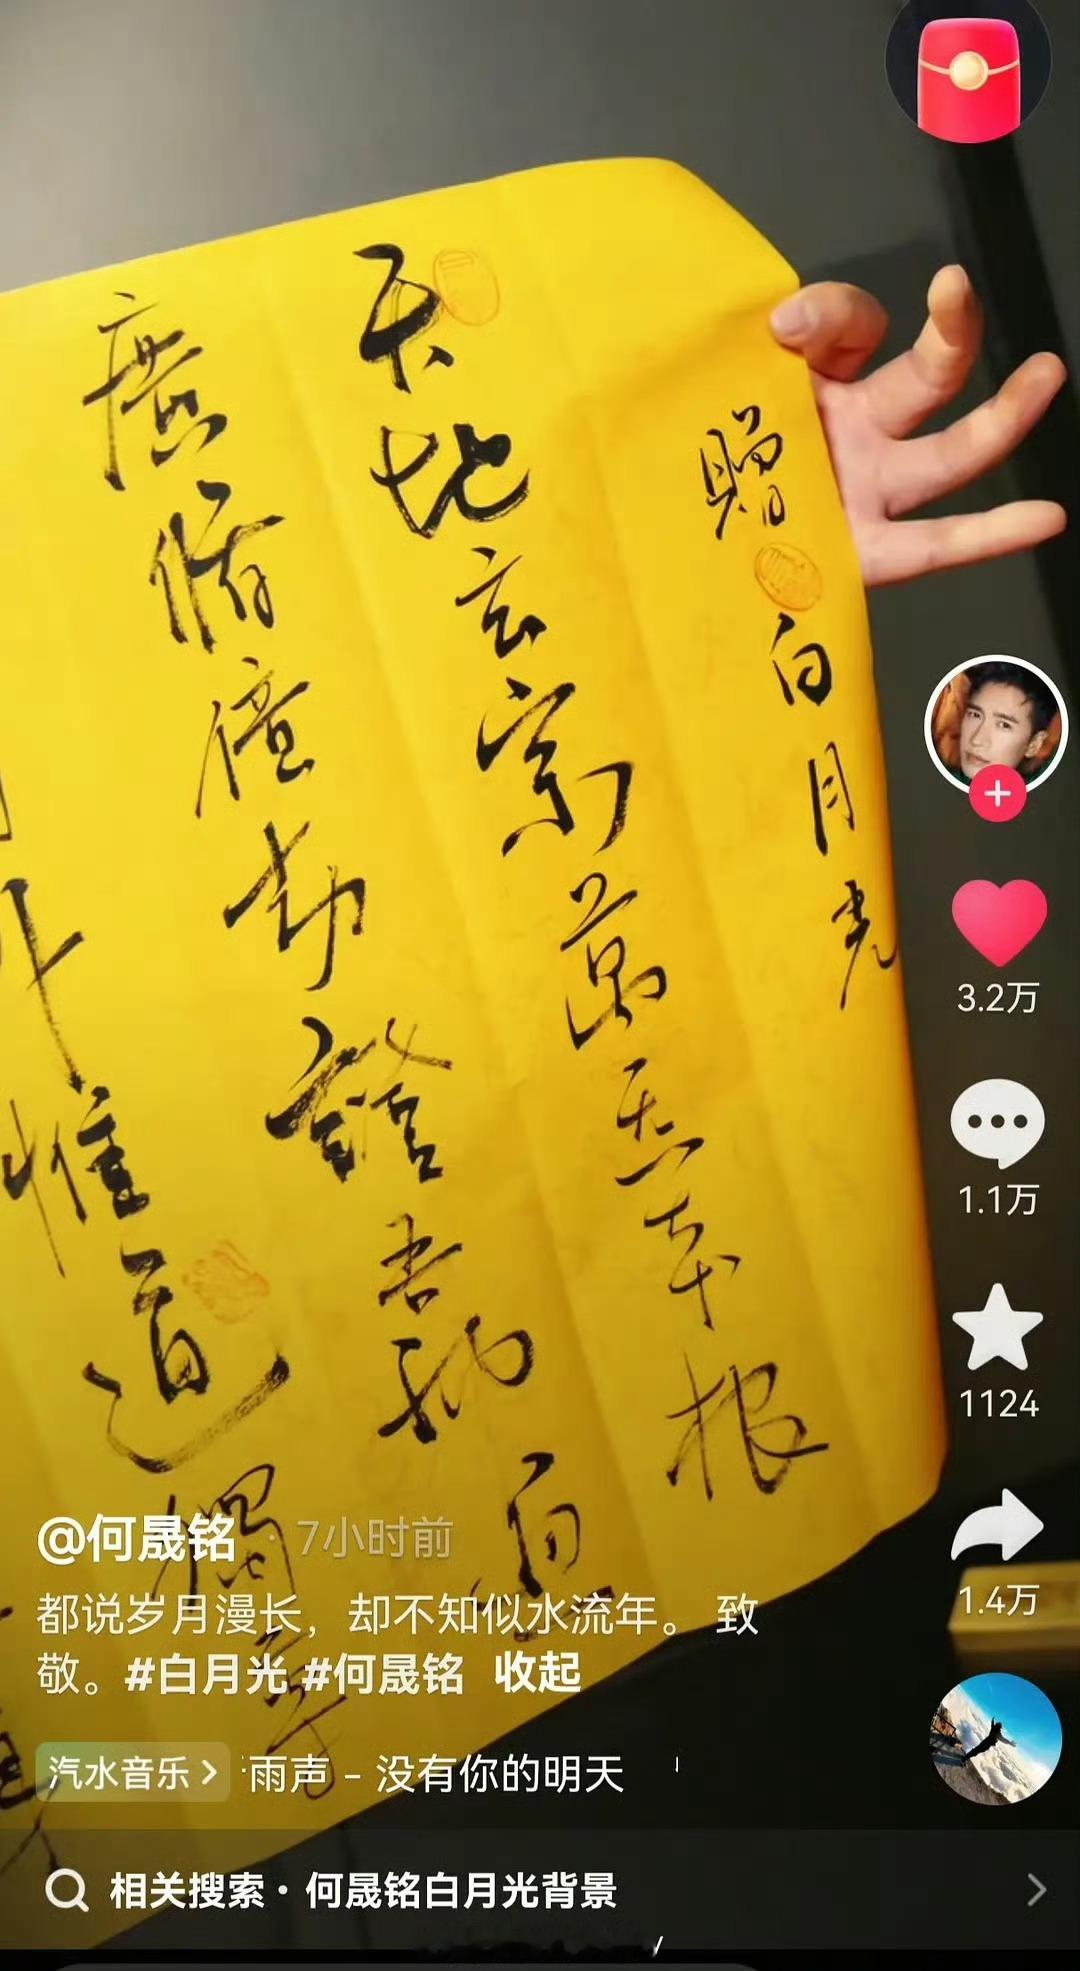 贈
白月光
天地玄宗萬炁本根
廣脩億劫證吾神
惟道獨
3.2万
1.1万
1124
1.4万
@何晟铭 · 7小时前
都说岁月漫长，却不知似水流年。 致
敬。#白月光 #何晟铭 收起
汽水音乐
雨声 – 没有你的明天
相关搜索 · 何晟铭白月光背景